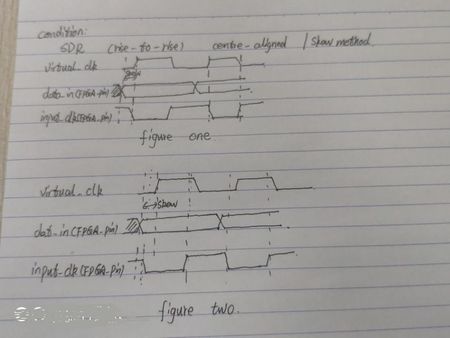 condition:
SDR (rise-to-rise) centre-aligned / skew method
virtual_clk
skew
data_in(FPGA-pin)
input_clk(FPGA-pin)
figure one
virtual_clk
skew
dat_in(FPGA-pin)
input_clk(FPGA-pin)
figure two.